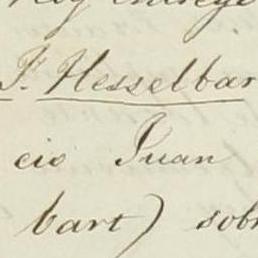 J. Hesselbar
cio Juan
bart) sob